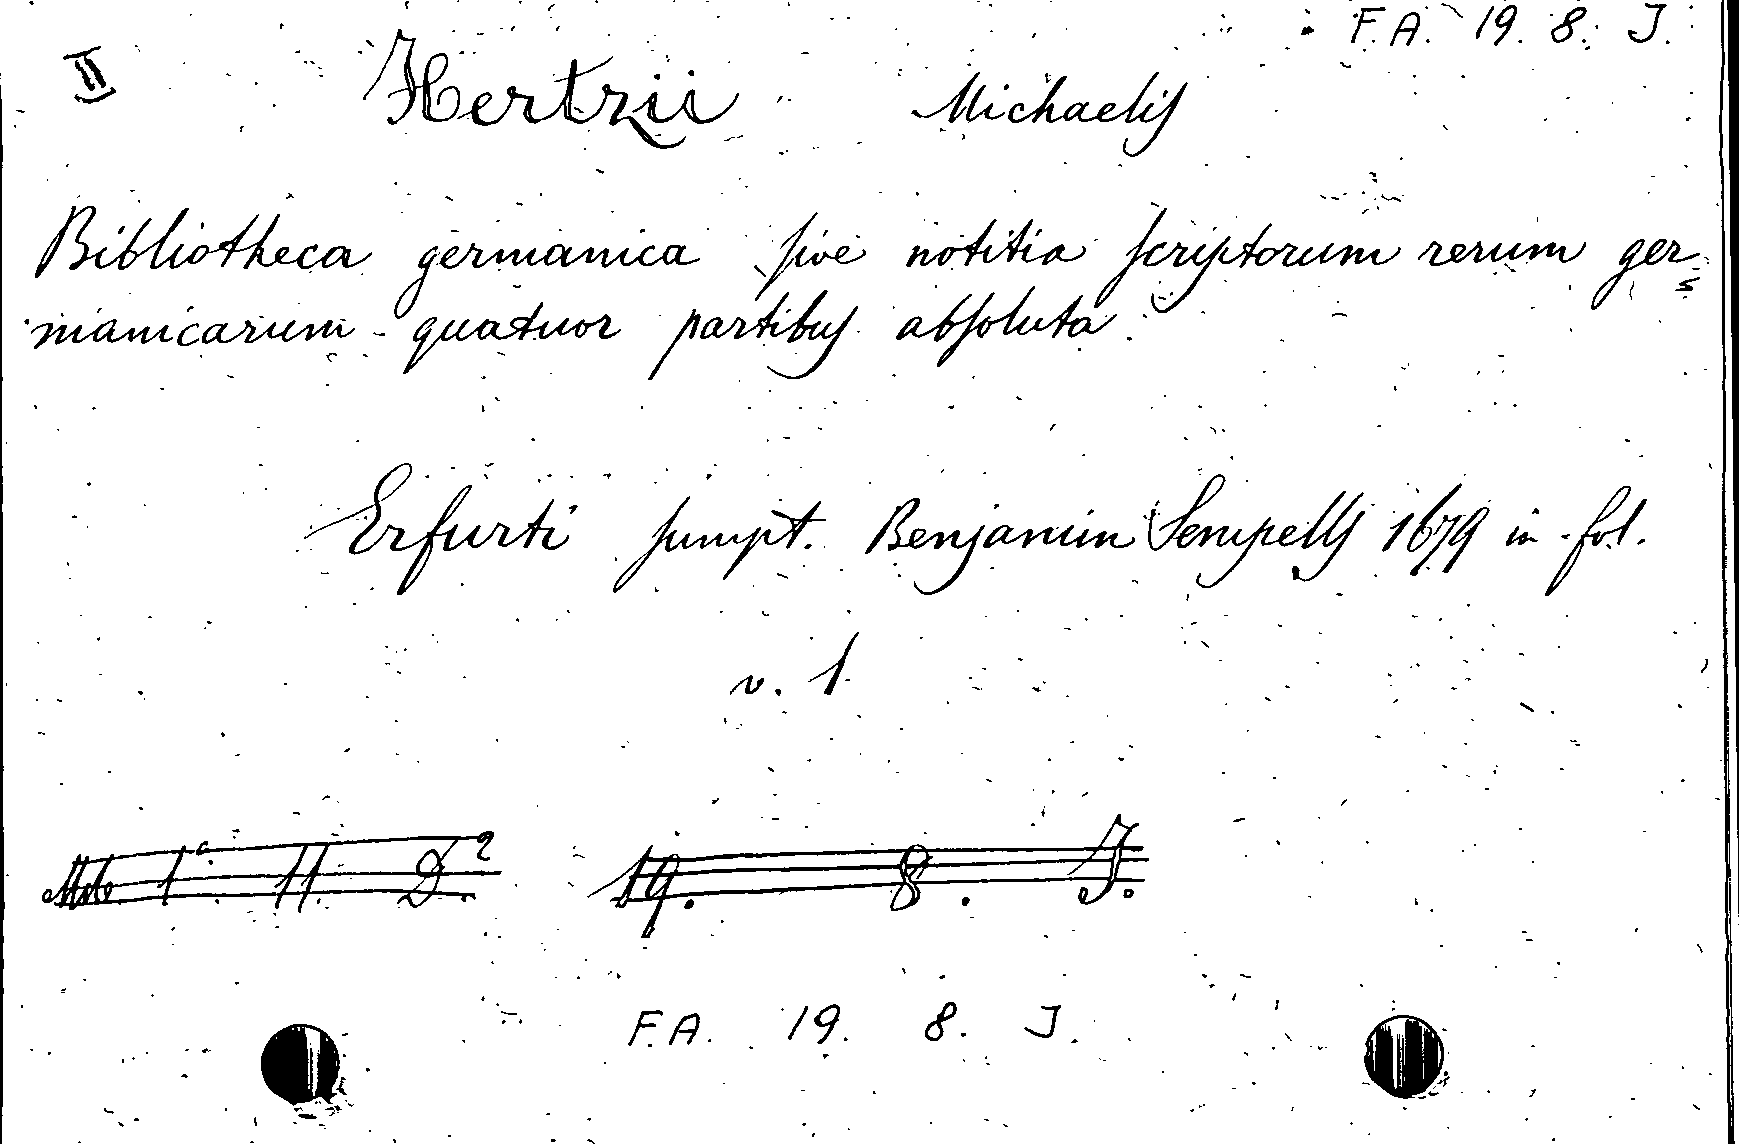 F. A. 19. 8. J.
II Hertzii Michaelis
Bibliotheca germanica sive notitia scriptorum rerum ger=
manicarum quatuor partibus absoluta.
Erfurti sumpt. Benjamin Sempells 1679 in fol.
v. 1
11 19. 8. J.
F. A. 19. 8. J.